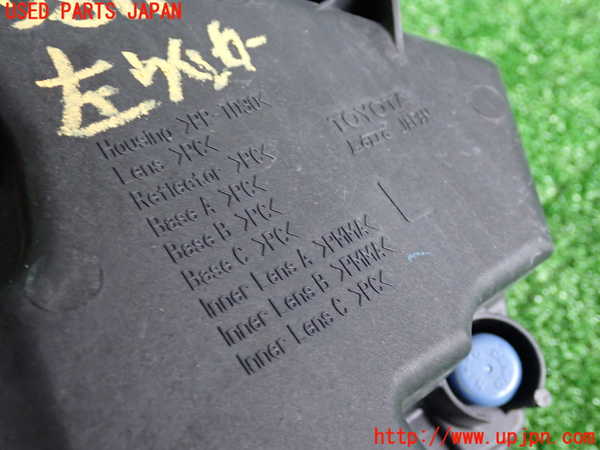 USED PARTS JAPAN
左
Housing >PP-TD30<
Lens >PC<
Reflector >PC<
Base A >PC<
Base B >PC<
Base C >PC<
Inner Lens A >PMMA<
Inner Lens B >PMMA<
Inner Lens C >PC<
TOYOTA
L
http://www.upjpn.com